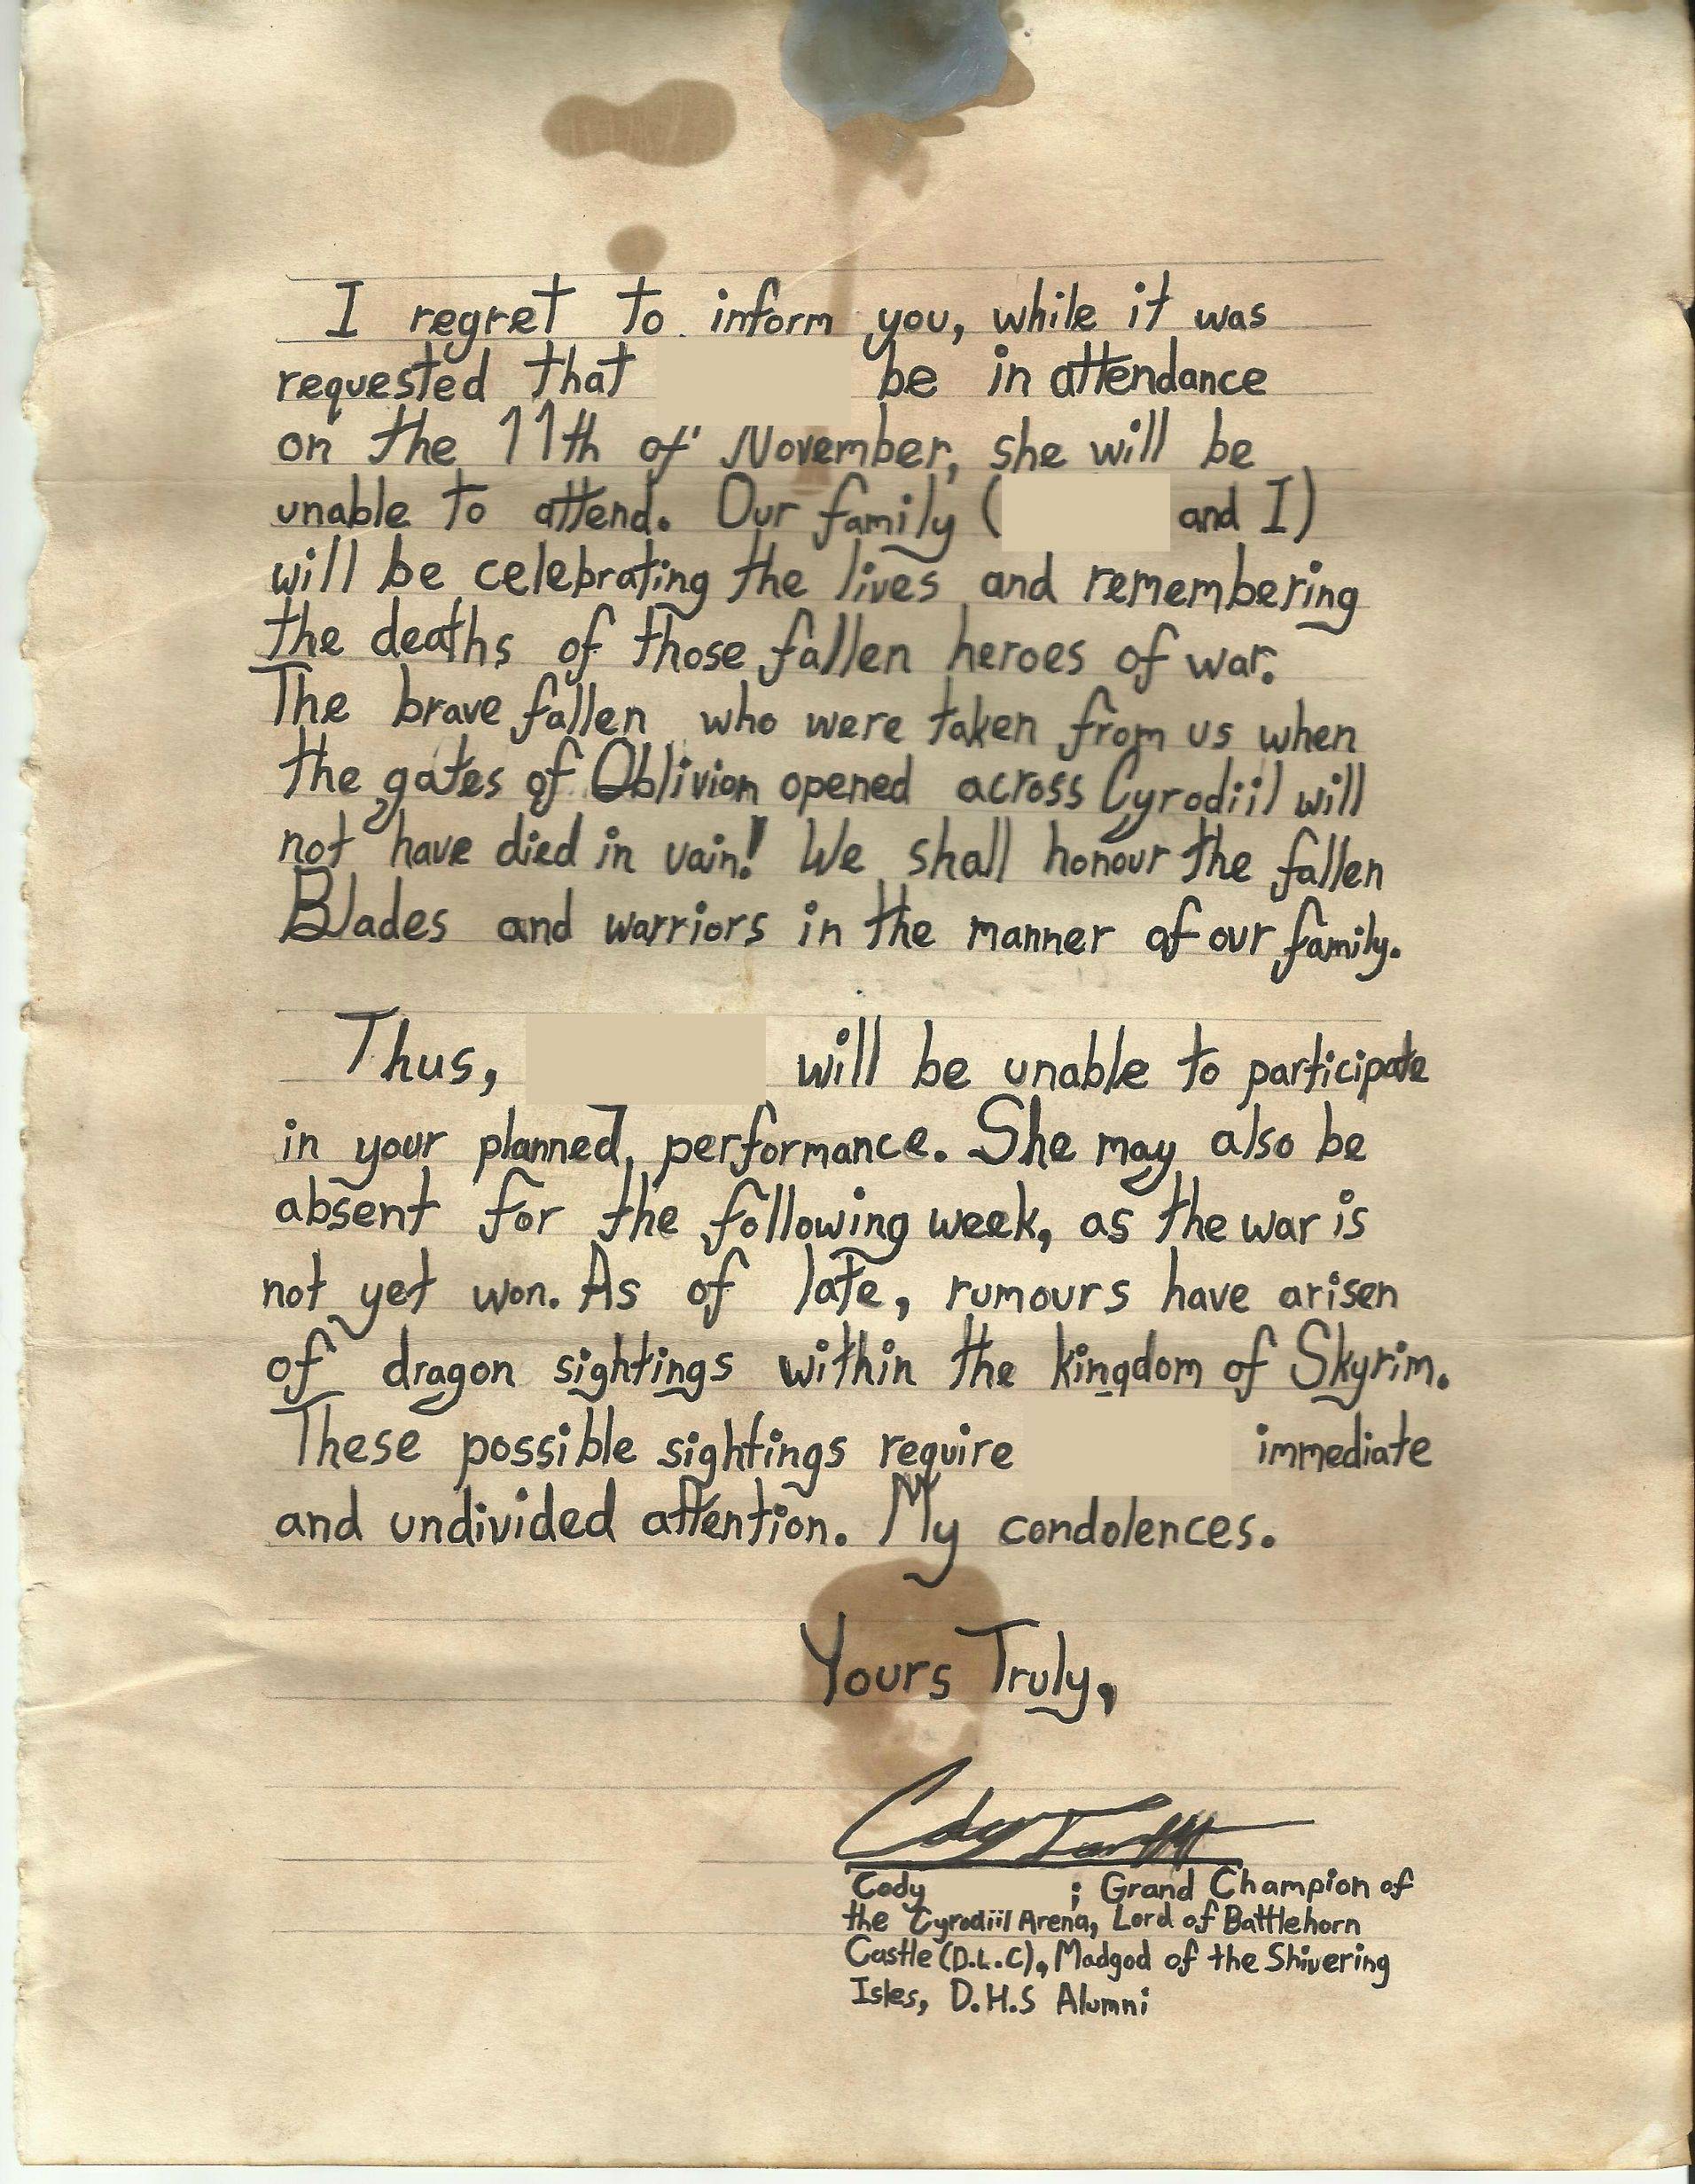 I regret to inform you, while it was
requested that be in attendance
on the 11th of November, she will be
unable to attend. Our family ( and I)
will be celebrating the lives and remembering
the deaths of those fallen heroes of war.
The brave fallen who were taken from us when
the gates of Oblivion opened across Cyrodiil will
not have died in vain! We shall honour the fallen
Blades and warriors in the manner of our family.
Thus, will be unable to participate
in your planned performance. She may also be
absent for the following week, as the war is
not yet won. As of late, rumours have arisen
of dragon sightings within the kingdom of Skyrim.
These possible sightings require immediate
and undivided attention. My condolences.
Yours Truly,
Cody
Cody ; Grand Champion of
the Cyrodiil Arena, Lord of Battlehorn
Castle (D.L.C), Madgod of the Shivering
Isles, D.H.S Alumni